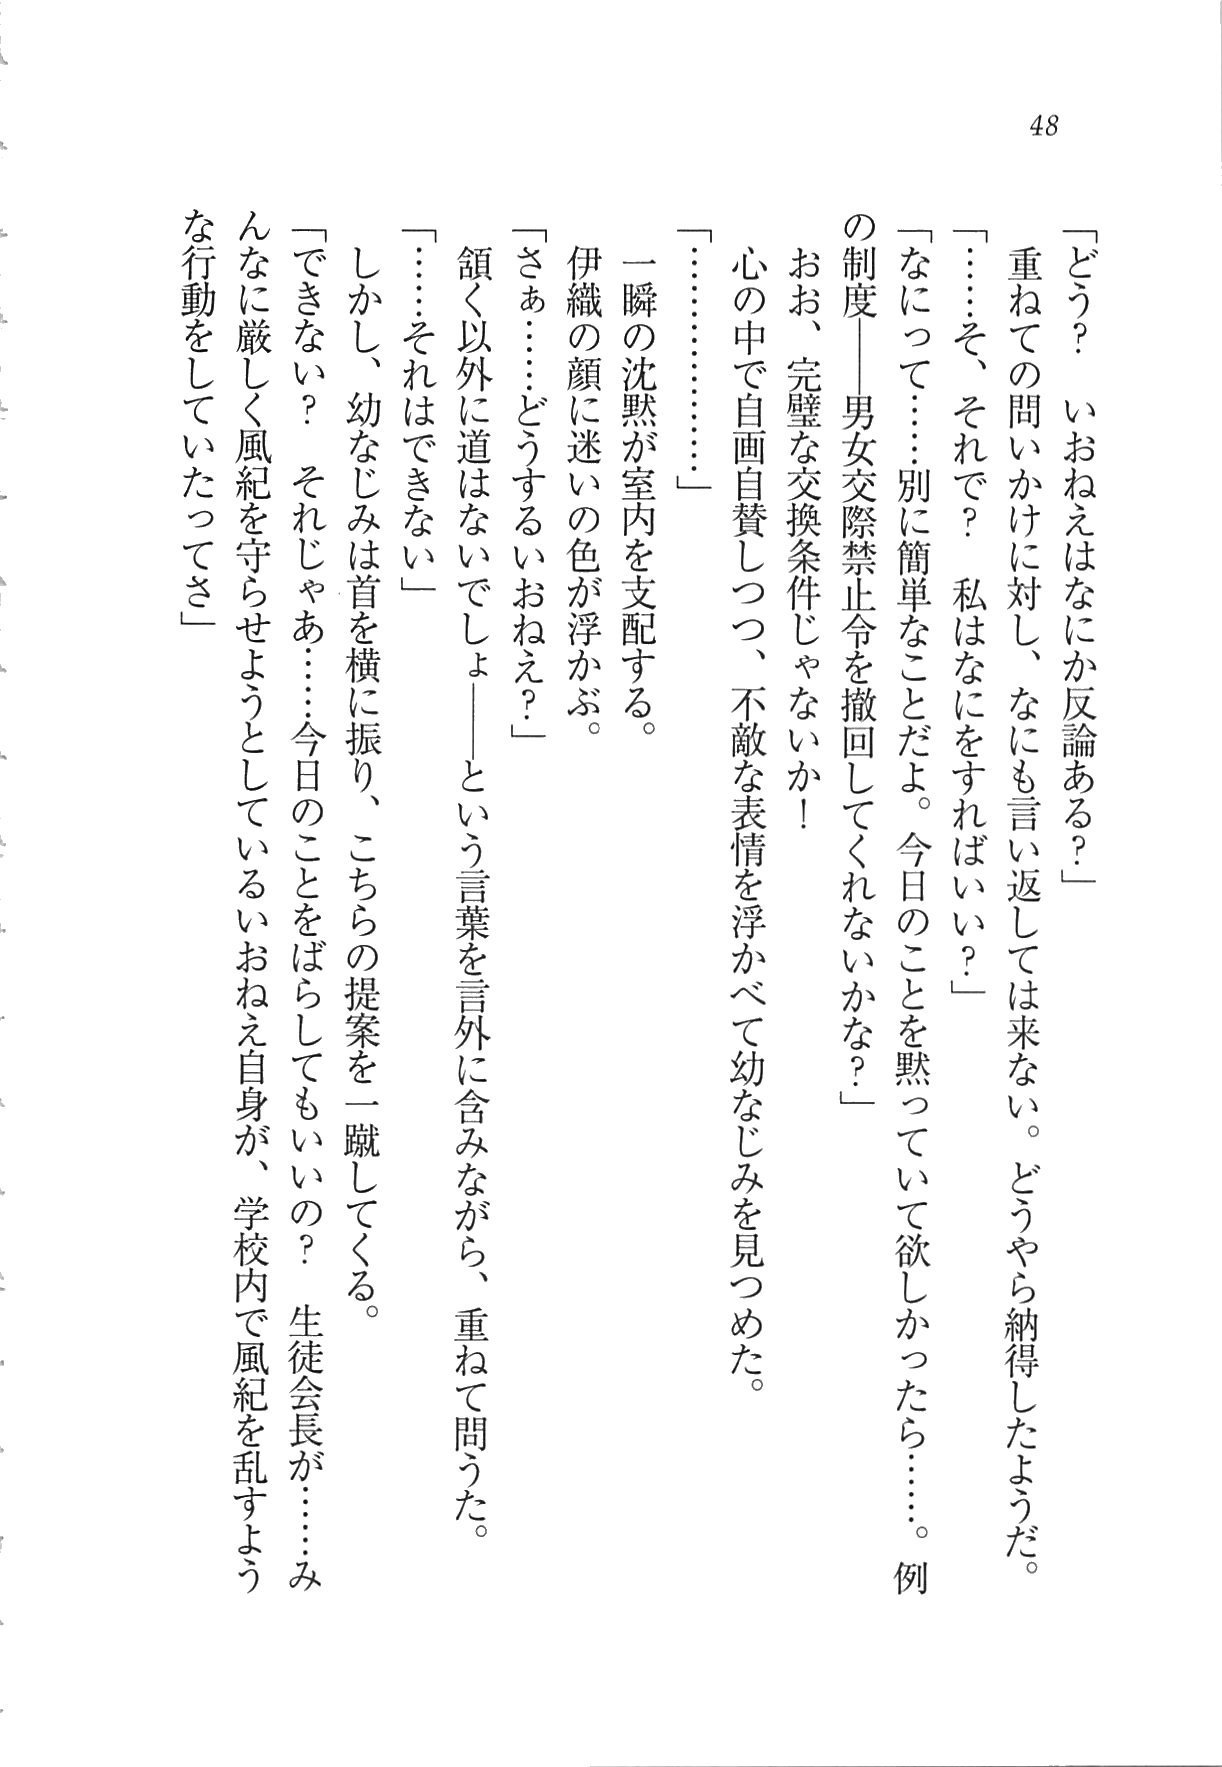 48
「どう？　いおねえはなにか反論ある？」
　重ねての問いかけに対し、なにも言い返しては来ない。どうやら納得したようだ。
「……そ、それで？　私はなにをすればいい？」
「なにって……別に簡単なことだよ。今日のことを黙っていて欲しかったら……。例
の制度――男女交際禁止令を撤回してくれないかな？」
　おお、完璧な交換条件じゃないか！
　心の中で自画自賛しつつ、不敵な表情を浮かべて幼なじみを見つめた。
「………………」
　一瞬の沈黙が室内を支配する。
　伊織の顔に迷いの色が浮かぶ。
「さぁ……どうするいおねえ？」
　頷く以外に道はないでしょ――という言葉を言外に含みながら、重ねて問うた。
「……それはできない」
　しかし、幼なじみは首を横に振り、こちらの提案を一蹴してくる。
「できない？　それじゃあ……今日のことをばらしてもいいの？　生徒会長が……み
んなに厳しく風紀を守らせようとしているいおねえ自身が、学校内で風紀を乱すよう
な行動をしていたってさ」